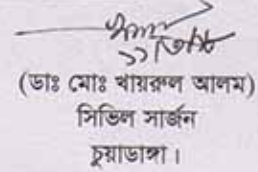 (ডাঃ মোঃ খায়রুল আলম)
সিভিল সার্জন
চুয়াডাঙ্গা।